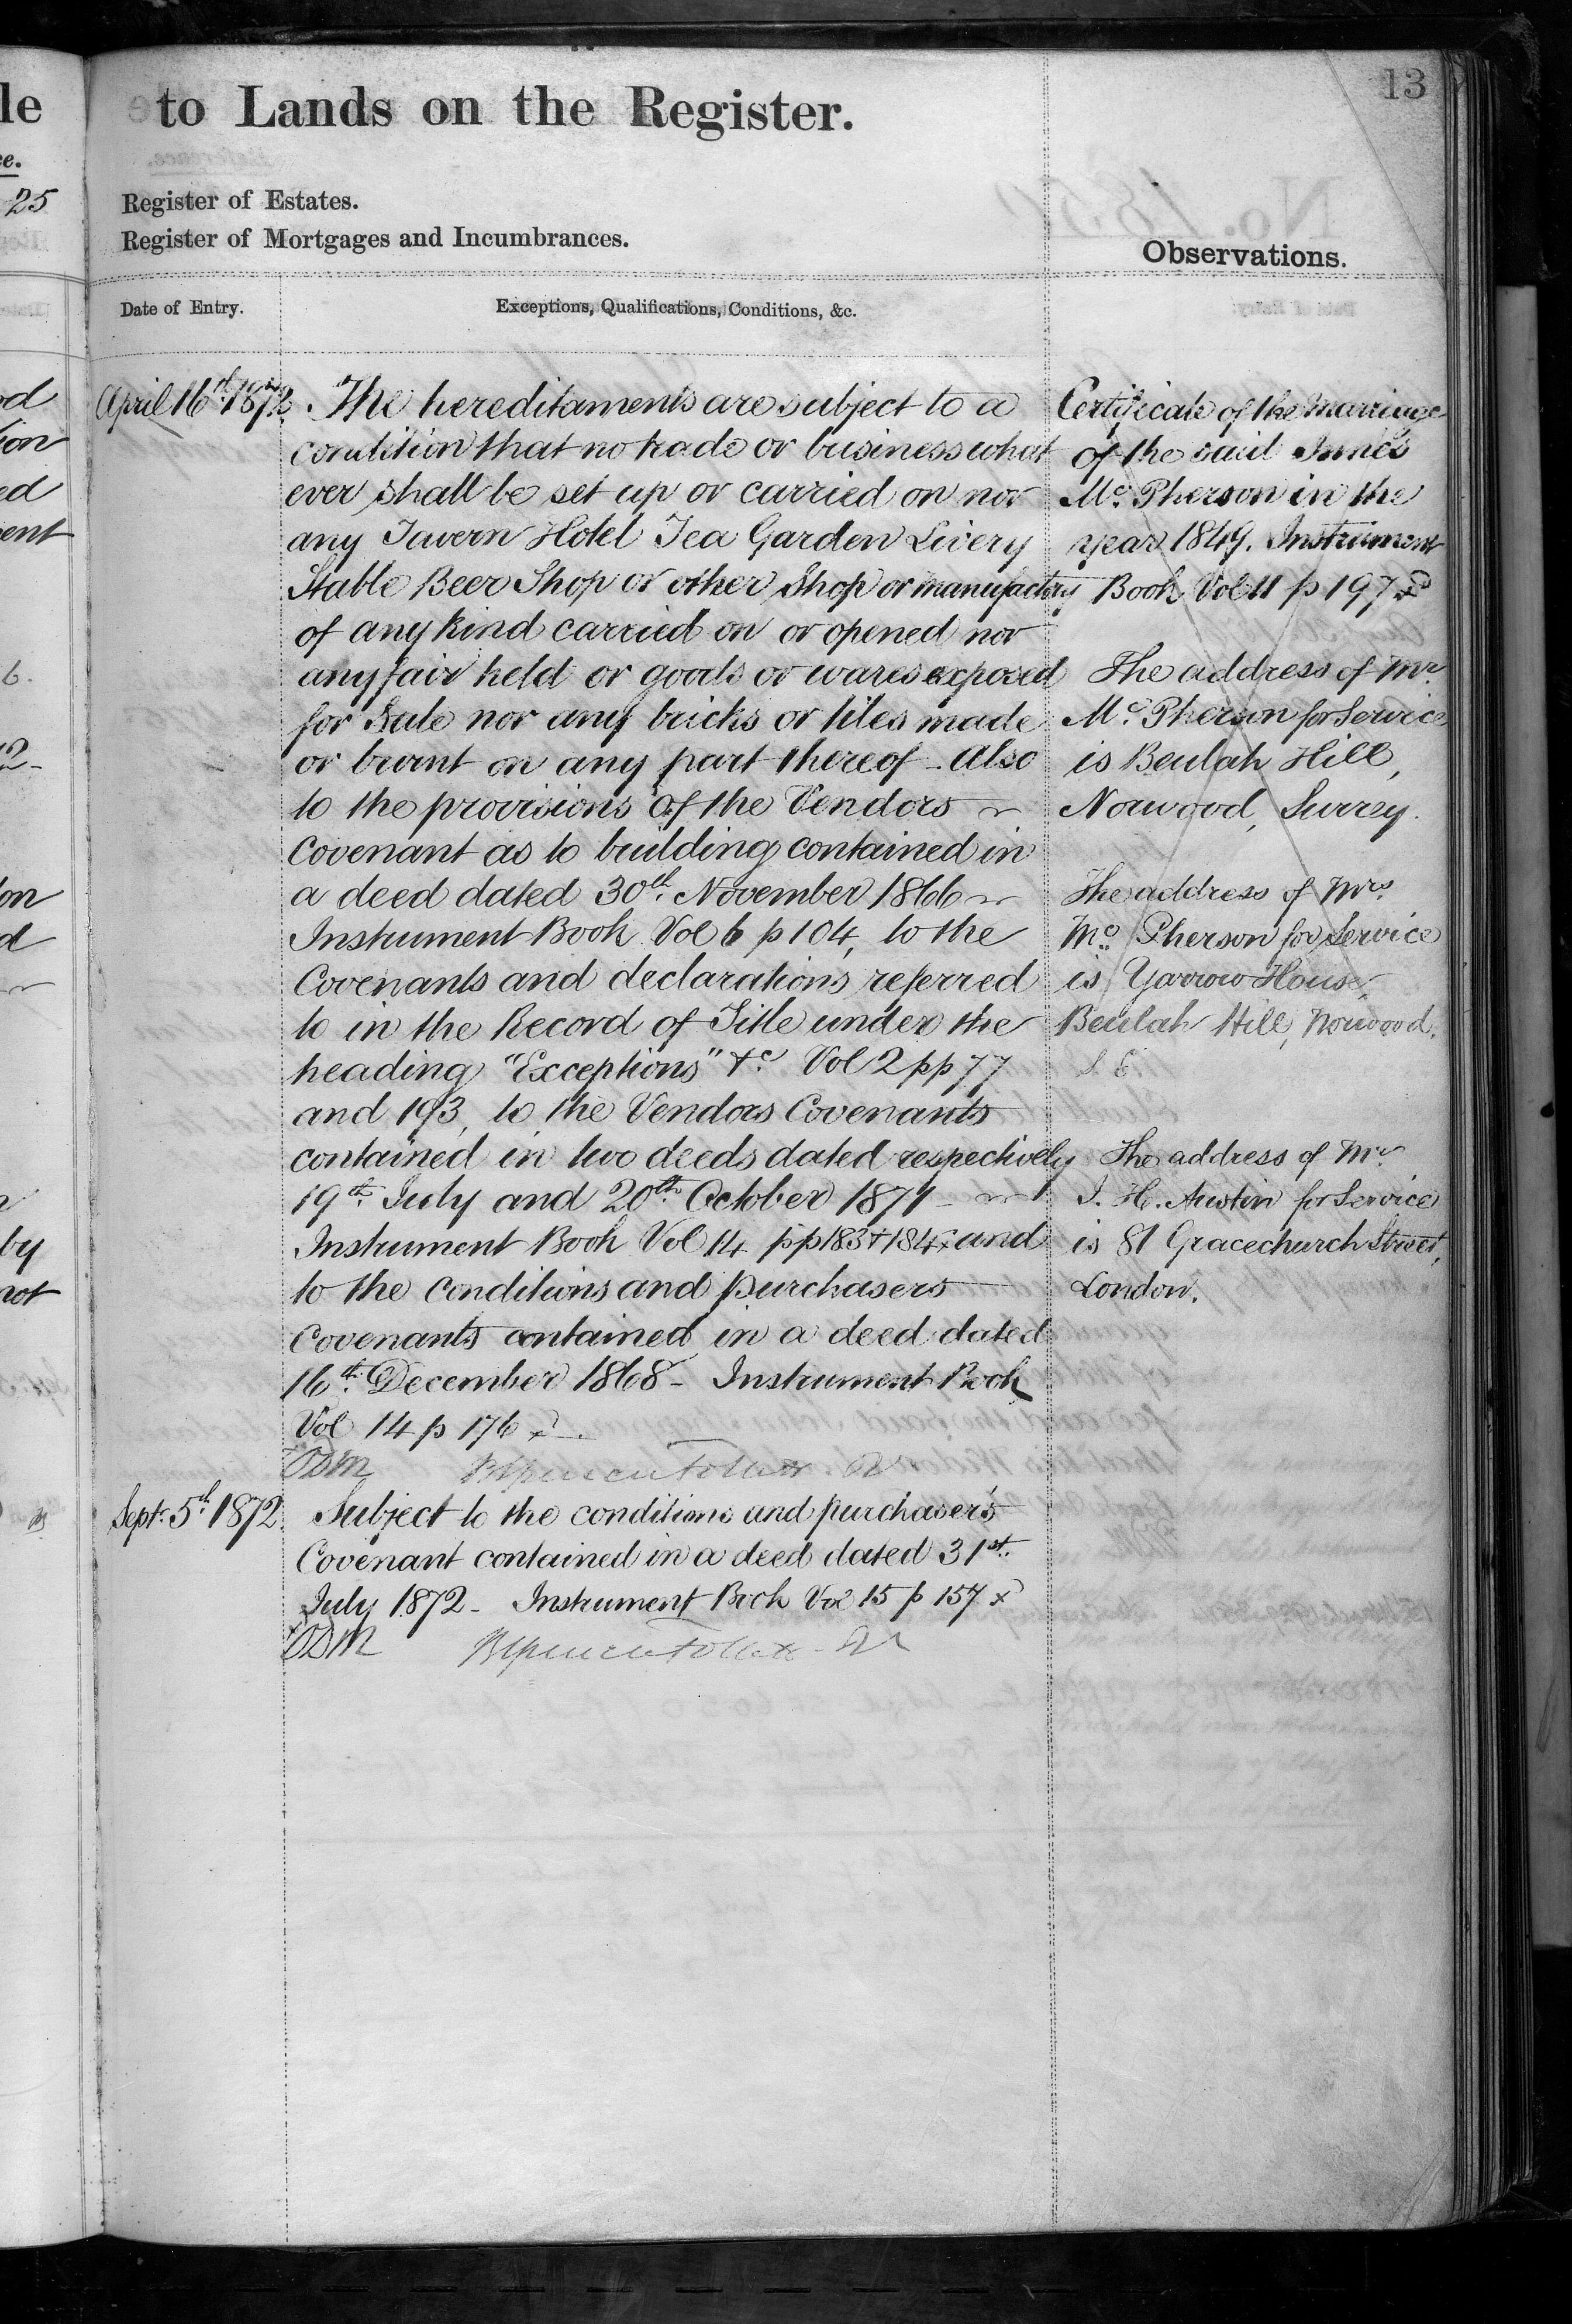 13
to Lands on the Register.
Register of Estates.
Register of Mortgages and Incumbrances.
Observations.
Date of Entry.
Exceptions, Qualifications, Conditions, &c.
April 16th 1872.
The hereditaments are subject to a
condition that no trade or business what
ever shall be set up or carried on nor
any Tavern Hotel Tea Garden Livery
Stable Beer Shop or other Shop or manufactory
of any kind carried on or opened nor
any fair held or goods or wares exposed
for Sale nor any bricks or tiles made
or burnt on any part thereof - Also
to the provisions of the Vendors
Covenant as to building contained in
a deed dated 30th November 1866
Instrument Book Vol 6 p 104, to the
Covenants and declarations referred
to in the Record of Title under the
heading "Exceptions" &c Vol 2 pp 77
and 193, to the Vendors Covenants
contained in two deeds dated respectively
19th July and 20th October 1871
Instrument Book Vol 14 pp 183 & 184 and
to the conditions and purchasers
Covenants contained in a deed dated
16th December 1868 - Instrument Book
Vol 14 p 176
Sept. 5th 1872.
Subject to the conditions and purchaser's
Covenant contained in a deed dated 31st
July 1872 - Instrument Book Vol 15 p 157
Certificate of the Marriage
of the said Innes
Mc Pherson in the
year 1849. Instrument
Book Vol 11 p 197
The address of Mr
Mc Pherson for Service
is Beulah Hill,
Norwood, Surrey.
The address of Mrs
Mc Pherson for Service
is Yarrow House,
Beulah Hill, Norwood,
S. E.
The address of Mr
J. H. Austin for Service
is 81 Gracechurch Street,
London.